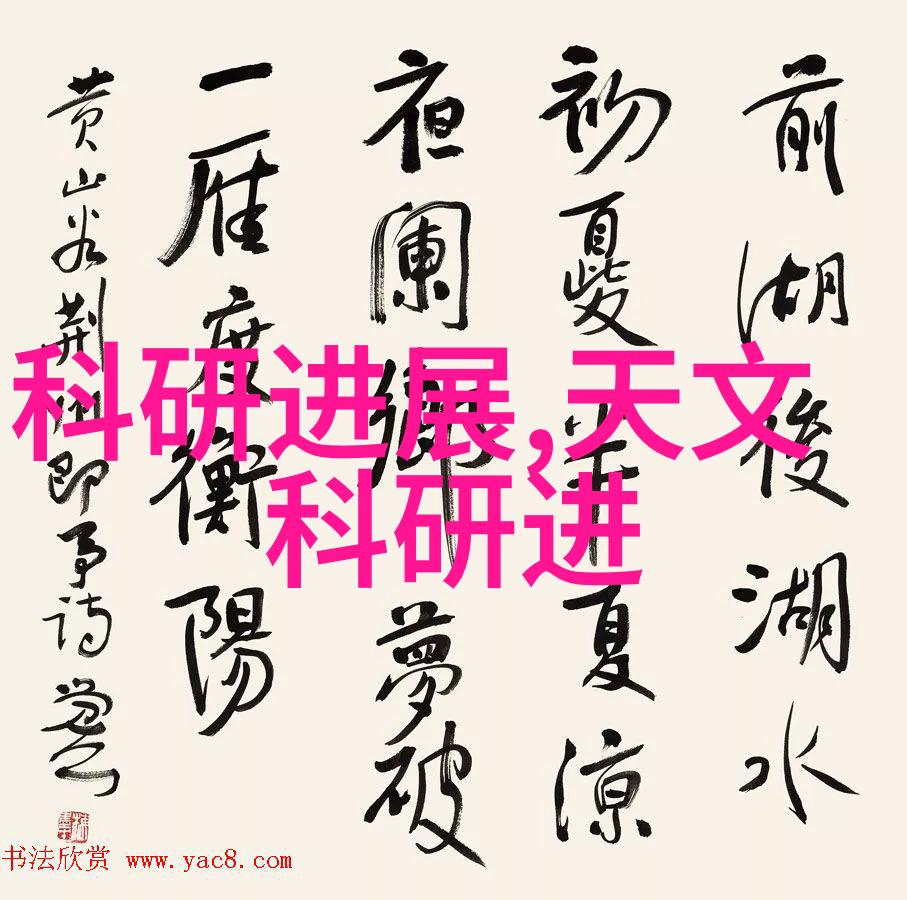 前湖後湖水
初夏半夏涼
夜闌鄉夢破
一雁度衡陽
黄山谷荆州即事诗
科研进展,天文
科研进
书法欣赏 www.yac8.com